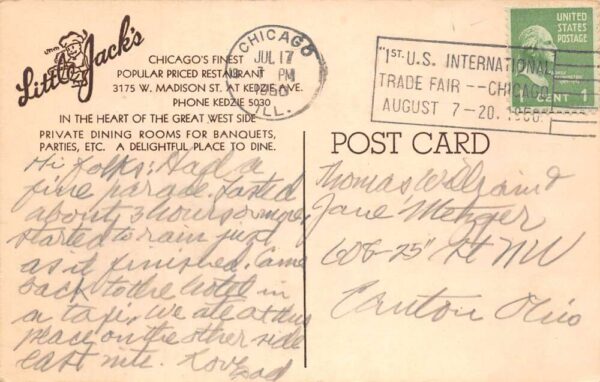 Little Jack's
CHICAGO'S FINEST
POPULAR PRICED RESTAURANT
3175 W. MADISON ST. AT KEDZIE AVE.
PHONE KEDZIE 5030
IN THE HEART OF THE GREAT WEST SIDE
PRIVATE DINING ROOMS FOR BANQUETS,
PARTIES, ETC. A DELIGHTFUL PLACE TO DINE.
CHICAGO
JUL 17
PM
1950
ILL.
"1ST. U.S. INTERNATIONAL
TRADE FAIR -- CHICAGO
AUGUST 7-20, 1950"
UNITED
STATES
POSTAGE
1 CENT 1
POST CARD
Hi folks: Had a
fine parade. Lasted
about 3 hours or more,
started to rain just
as it finished. Came
back to the hotel in
a taxi, we ate at this
place on the other side
last nite. Love
Dad
Thomas and
Jane Metzger
608-25" St NW
Canton Ohio